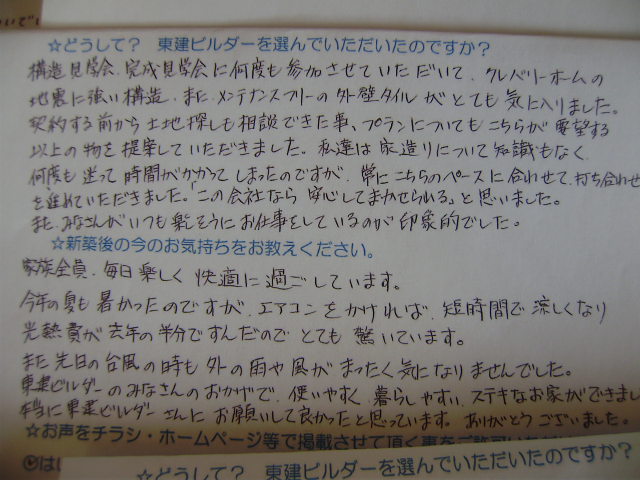 ☆どうして？ 東建ビルダーを選んでいただいたのですか？
構造見学会、完成見学会に何度も参加させていただいて、クレバリーホームの
地震に強い構造、また メンテナンスフリーの外壁タイルがとても気に入りました。
契約する前から土地探しも相談できた事、プランについてもこちらが要望する
以上の物を提案していただきました。私達は家造りについて知識もなく、
何度も迷って時間がかかってしまったのですが、常にこちらのペースに合わせて、打ち合わせ
を進めていただきました。「この会社なら安心してまかせられる。」と思いました。
また、みなさんがいつも楽しそうにお仕事をしているのが印象的でした。
☆新築後の今のお気持ちをお教えください。
家族全員、毎日楽しく快適に過ごしています。
今年の夏も暑かったのですが、エアコンをかければ、短時間で涼しくなり
光熱費が去年の半分ですんだのでとても驚いています。
また先日の台風の時も外の雨や風がまったく気になりませんでした。
東建ビルダーのみなさんのおかげで、使いやすく、暮らしやすい、ステキなお家ができまし
本当に東建ビルダーさんにお願いして良かったと思っています。ありがとうございました。
☆お声をチラシ・ホームページ等で掲載させて頂く事を
はい
☆どうして？ 東建ビルダーを選んでいただいたのですか？